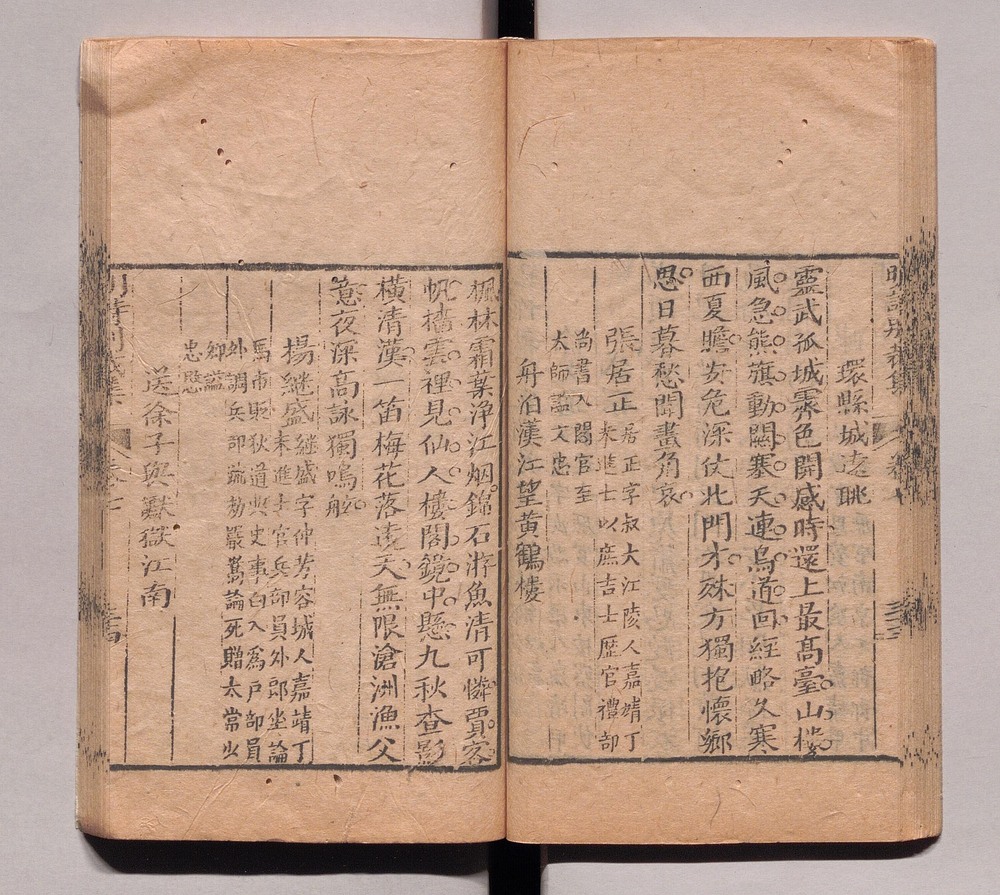 環縣城遠眺
靈武孤城霽色開感時還上最高臺山樓
風急熊旗動關塞天連鳥道回經略久寒
西夏膽安危深仗北門才殊方獨抱懷鄉
思日暮愁聞畫角哀
張居正居正字叔大江陵人嘉靖丁
未進士以庶吉士歷官禮部
尚書入閣官至
太師謚文忠
舟泊漢江望黃鶴樓
楓林霜葉浄江烟錦石游魚清可憐賈客
帆檣雲裡見仙人樓閣鏡中懸九秋查影
橫清漢一笛梅花落遠天無限滄洲漁父
意夜深高詠獨鳴舷
楊繼盛繼盛字仲芳容城人嘉靖丁
未進士官兵部員外郎坐論
馬市貶狄道典史事白入爲戶部員
外調兵部疏劾嚴嵩論死贈太常少
卿謚
忠愍
送徐子與讞獄江南